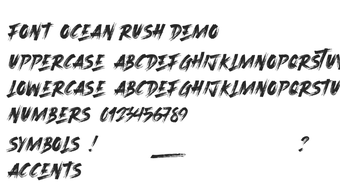 FONT OCEAN RUSH DEMO
UPPERCASE ABCDEFGHIJKLMNOPQRSTUV
LOWERCASE ABCDEFGHIJKLMNOPQRSTU
NUMBERS 0123456789
SYMBOLS ! _ ?
ACCENTS